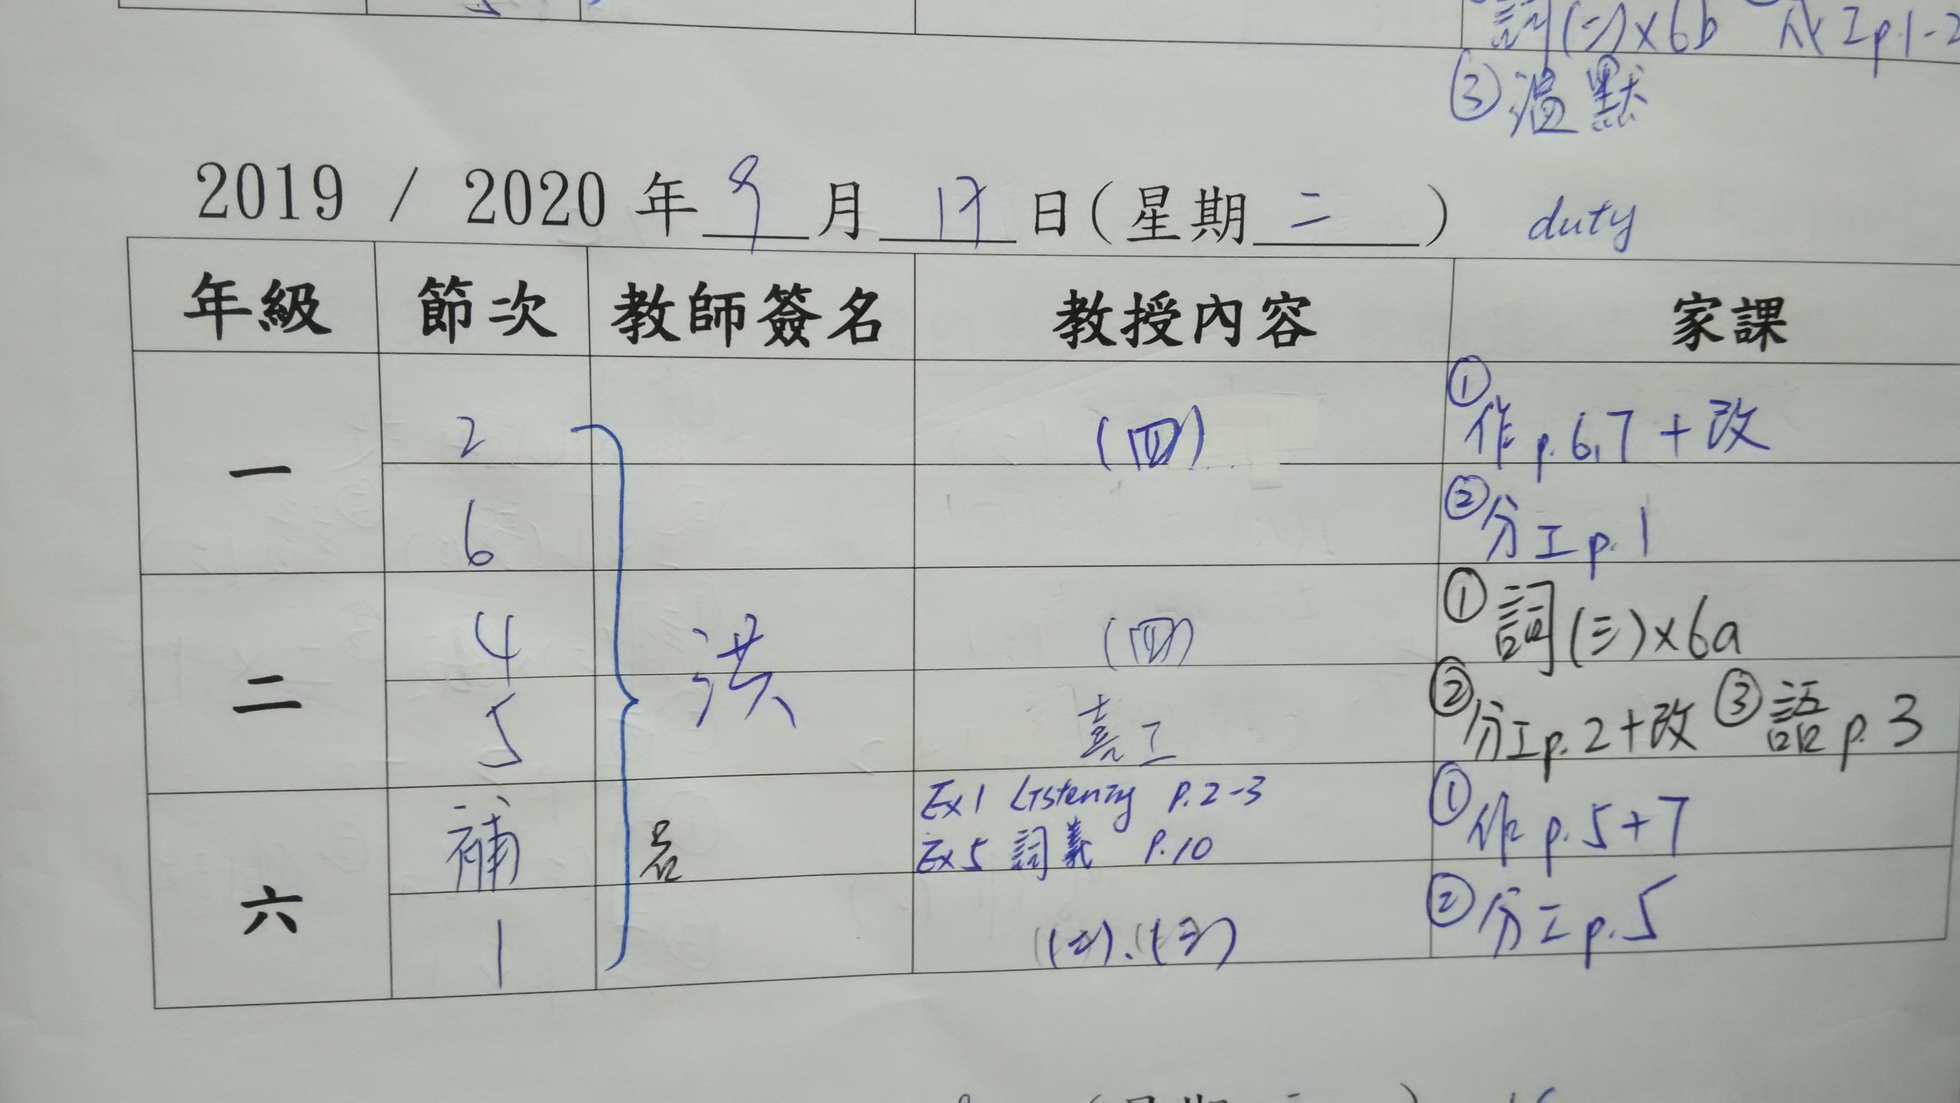 詞(二)x6b 分工p.1-2
③溫默
2019 / 2020 年 9 月 17 日(星期 二 ) duty
年級 節次 教師簽名 教授內容 家課
一 2 (四) ①作p.6,7+改
6 ②分工p.1
二 4 洪 (四) ①詞(三)x6a
5 工 ②分工p.2+改 ③語p.3
六 補 Ex1 Listening P.2-3 ①作p.5+7
Ex5 詞義 P.10
1 (二)、(三) ②分工p.5
(星期